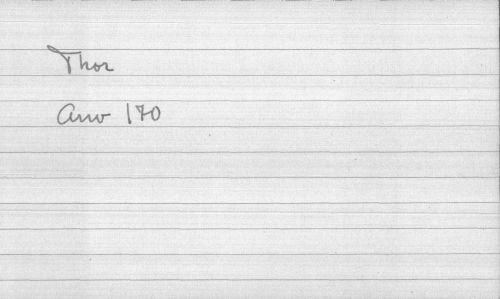 Thor
Arv 170